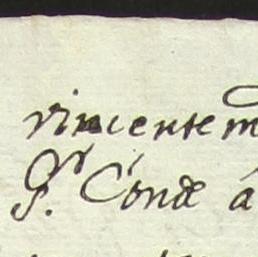 vincente m
Sr. Conde á